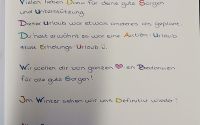 Vielen lieben Dank für deine gute Sorgen
und Unterstützung.
Dieser Urlaub war etwas anders als geplant.
Du hast erwähnt es war eine Action Urlaub
statt Erholungs Urlaub ü.
Wir wollen dir von ganzen ♥ en Bedanken
für die gute Sorgen!
Im Winter sehen wir uns Definitiv wieder!